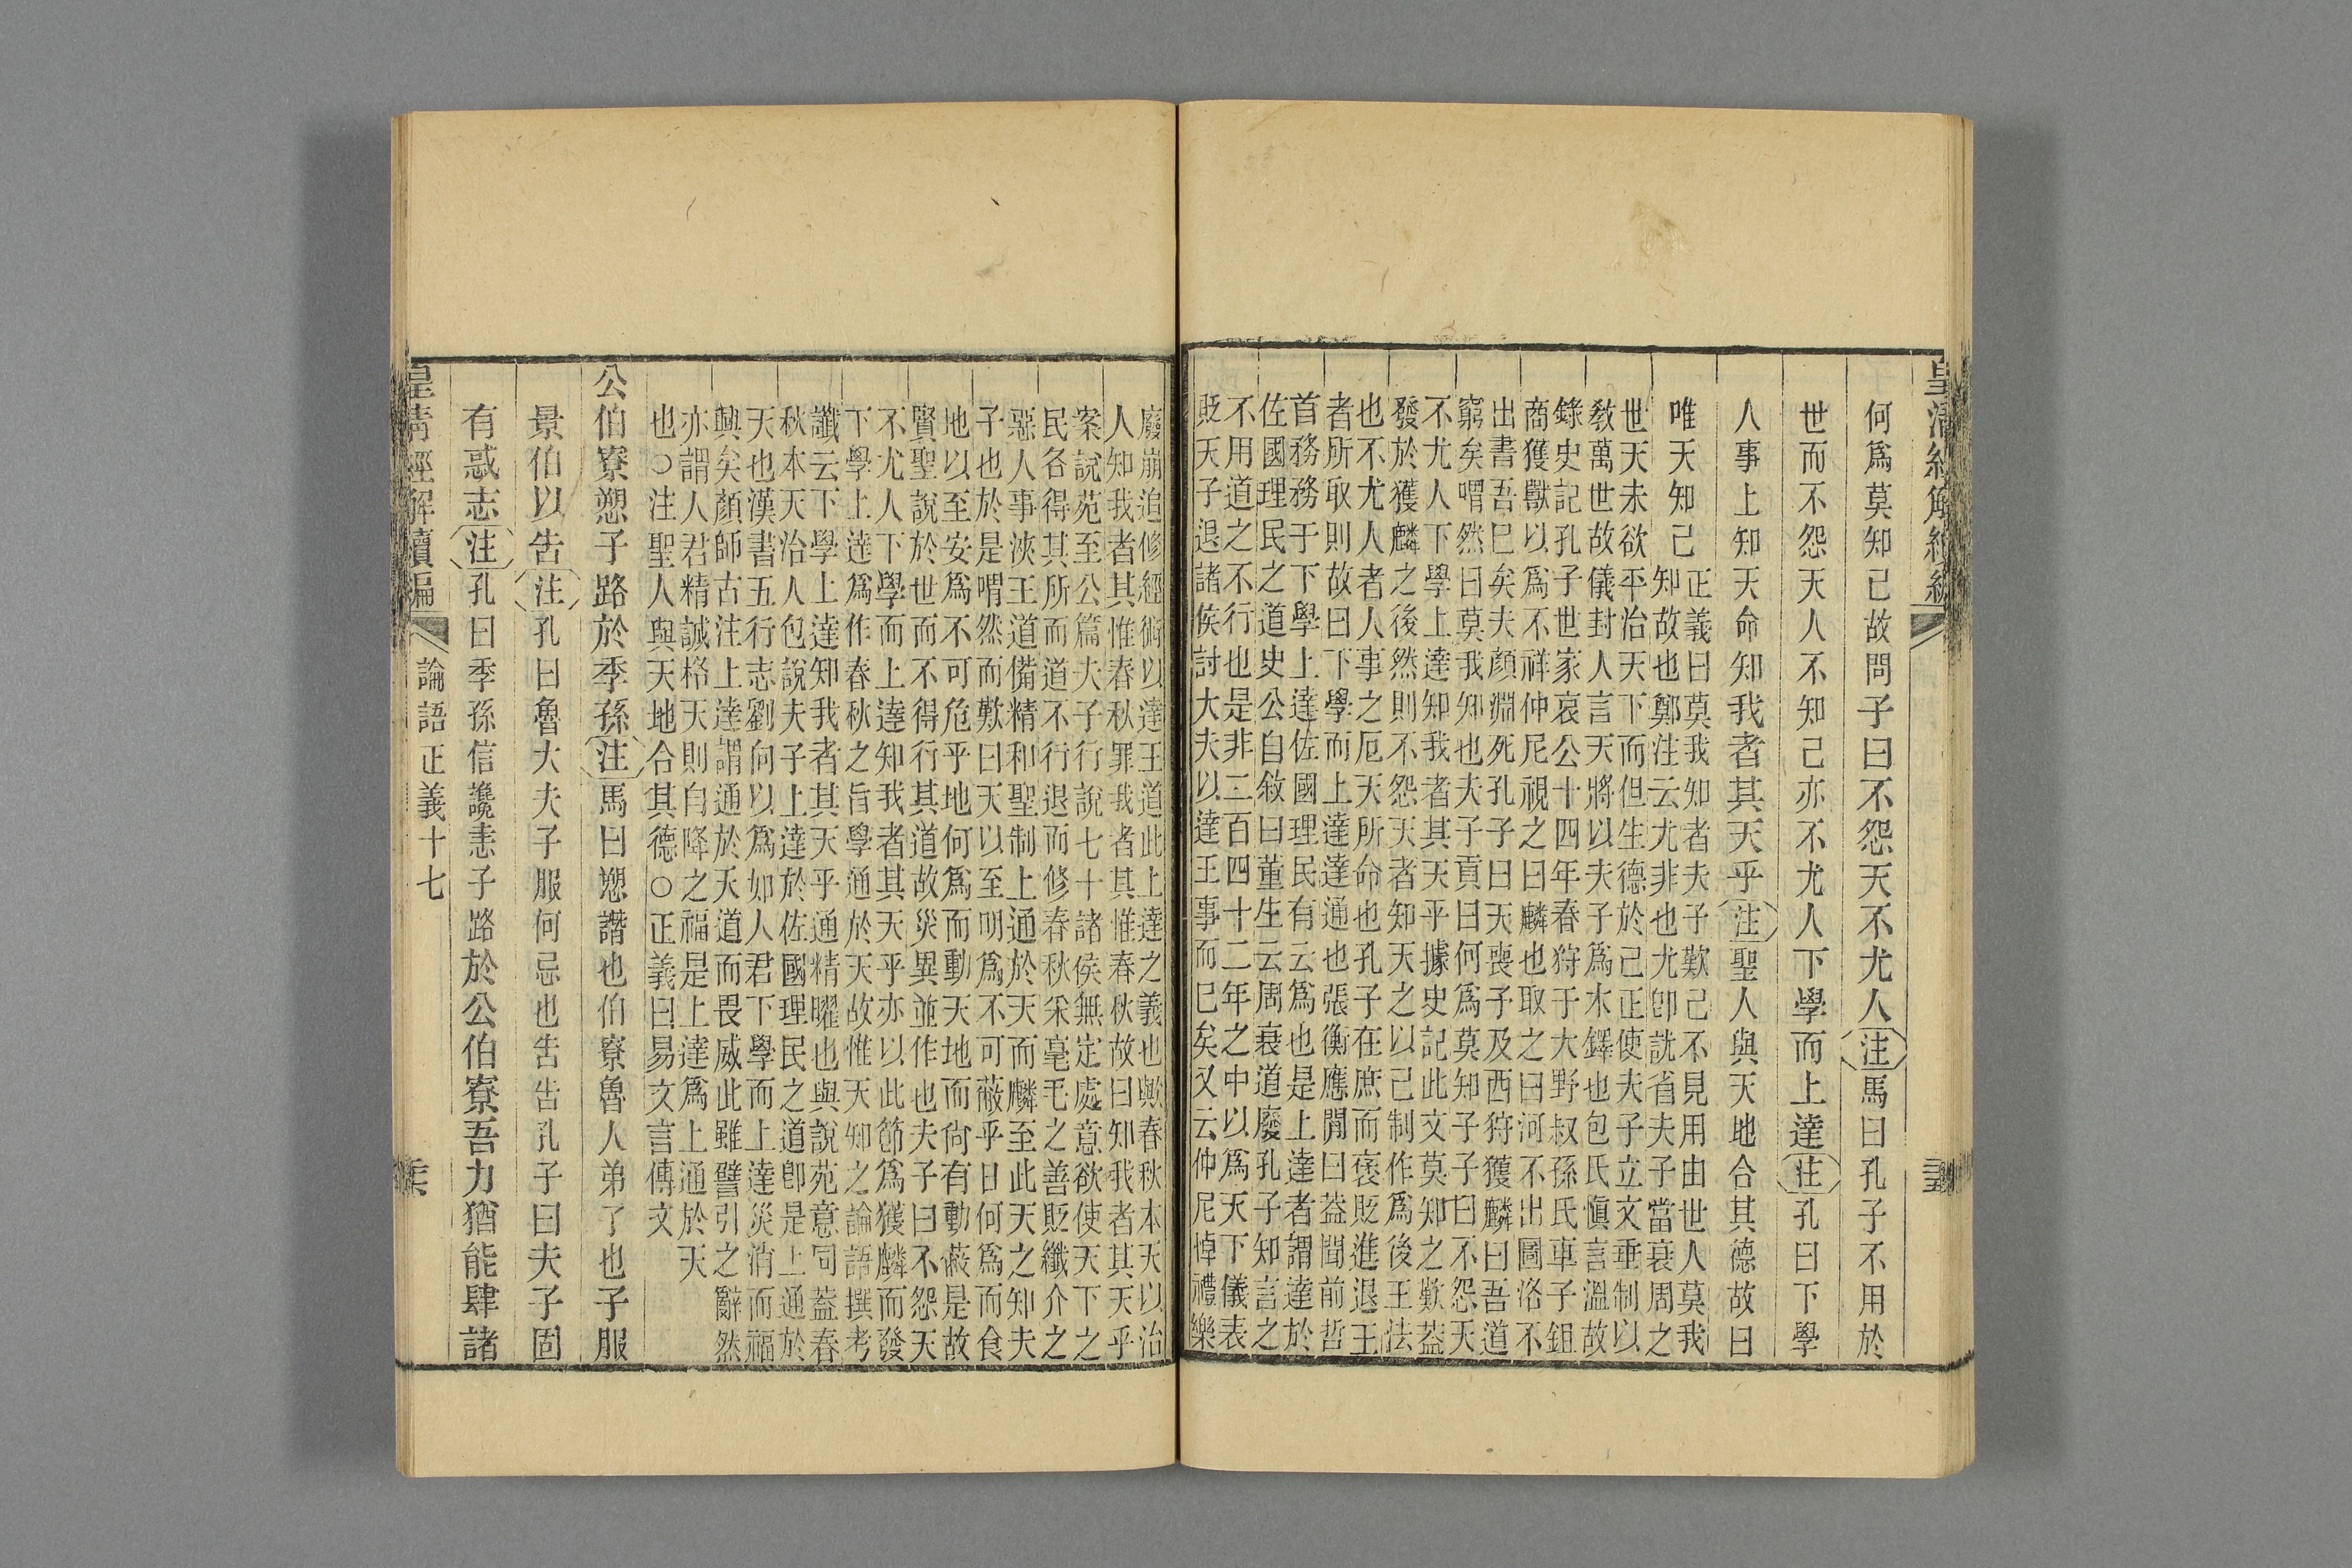 何爲莫知己故問子曰不怨天不尤人注馬曰孔子不用於
世而不怨天人不知己亦不尤人下學而上達注孔曰下學
人事上知天命知我者其天乎注聖人與天地合其德故曰
唯天知己
正義曰莫我知者夫子歎己不見用由世人莫我
知故也鄭注云尤非也尤卽訧省夫子當衰周之
世天未欲平治天下而但生德於己正使夫子立文垂制以
敎萬世故儀封人言天將以夫子爲木鐸也包氏愼言溫故
錄史記孔子世家哀公十四年春狩于大野叔孫氏車子鉏
商獲獸以爲不祥仲尼視之曰麟也取之曰河不出圖洛不
出書吾已矣夫顏淵死孔子曰天喪予及西狩獲麟曰吾道
窮矣喟然曰莫我知也夫子貢曰何爲莫知子子曰不怨天
不尤人下學上達知我者其天乎據史記此文莫知之歎蓋
發於獲麟之後然則不怨天者知天之以己制作爲後王法
也不尤人者人事之厄天所命也孔子在庶而襃貶進退王
者所取則故曰下學而上達達通也張衡應閒曰蓋聞前哲
首務務于下學上達佐國理民有云爲也是上達者謂達於
佐國理民之道史公自敘曰董生云周衰道廢孔子知言之
不用道之不行也是非二百四十二年之中以爲天下儀表
貶天子退諸侯討大夫以達王事而已矣又云仲尼悼禮樂
廢崩追修經術以達王道此上達之義也歟春秋本天以治
人知我者其惟春秋罪我者其惟春秋故曰知我者其天乎
案說苑至公篇夫子行說七十諸侯無定處意欲使天下之
民各得其所而道不行退而修春秋采毫毛之善貶纖介之
惡人事浹王道備精和聖制上通於天而麟至此天之知夫
子也於是喟然而歎曰天以至明爲不可蔽乎日何爲而食
地以至安爲不可危乎地何爲而動天地而尙有動蔽是故
賢聖說於世而不得行其道故災異並作也夫子曰不怨天
不尤人下學而上達知我者其天乎亦以此節爲獲麟而發
下學上達爲作春秋之旨學通於天故惟天知之論語撰考
讖云下學上達知我者其天乎通精曜也與說苑意同蓋春
秋本天治人包說夫子上達於佐國理民之道卽是上通於
天也漢書五行志劉向以爲如人君下學而上達災消而福
興矣顏師古注上達謂通於天道而畏威此雖譬引之辭然
亦謂人君精誠格天則自降之福是上達爲上通於天
也○注聖人與天地合其德○正義曰易文言傳文
公伯寮愬子路於季孫注馬曰愬譖也伯寮魯人弟子也子服
景伯以告注孔曰魯大夫子服何忌也告告孔子曰夫子固
有惑志注孔曰季孫信讒恚子路於公伯寮吾力猶能肆諸
皇清經解續編
論語正義十七